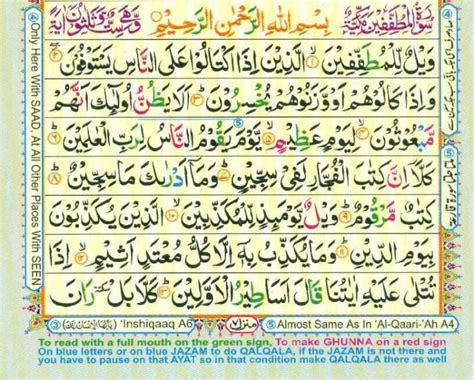 سُوْرَةُ الْمُطَفِّفِيْنَ مَكِّيَّةٌ
بِسْمِ اللّٰهِ الرَّحْمٰنِ الرَّحِيْمِ
وَيْلٌ لِّلْمُطَفِّفِيْنَ ۝۱ الَّذِيْنَ اِذَا اكْتَالُوْا عَلَى النَّاسِ يَسْتَوْفُوْنَ ۝۲
وَاِذَا كَالُوْهُمْ اَوْ وَّزَنُوْهُمْ يُخْسِرُوْنَ ۝۳ اَلَا يَظُنُّ اُولٰٓئِكَ اَنَّهُمْ
مَّبْعُوْثُوْنَ ۝۴ لِيَوْمٍ عَظِيْمٍ ۝۵ يَّوْمَ يَقُوْمُ النَّاسُ لِرَبِّ الْعٰلَمِيْنَ ۝۶
كَلَّآ اِنَّ كِتٰبَ الْفُجَّارِ لَفِيْ سِجِّيْنٍ ۝۷ وَمَآ اَدْرٰىكَ مَا سِجِّيْنٌ ۝۸
كِتٰبٌ مَّرْقُوْمٌ ۝۹ وَيْلٌ يَّوْمَئِذٍ لِّلْمُكَذِّبِيْنَ ۝۱۰ الَّذِيْنَ يُكَذِّبُوْنَ
بِيَوْمِ الدِّيْنِ ۝۱۱ وَمَا يُكَذِّبُ بِهٖٓ اِلَّا كُلُّ مُعْتَدٍ اَثِيْمٍ ۝۱۲ اِذَا
تُتْلٰى عَلَيْهِ اٰيٰتُنَا قَالَ اَسَاطِيْرُ الْاَوَّلِيْنَ ۝۱۳ كَلَّا بَلْ رَانَ
④ Only Here With SAAD, At All Other Places With SEEN
③ 'Inshiqaaq A6
منزل ۷
⑤ Almost Same As In 'Al-Qaari-'Ah A4
To read with a full mouth on the green sign, To make GHUNNA on a red sign
On blue letters or on blue JAZAM to do QALQALA, if the JAZAM is not there and
you have to pause on that AYAT so in that condition make QALQALA there as well